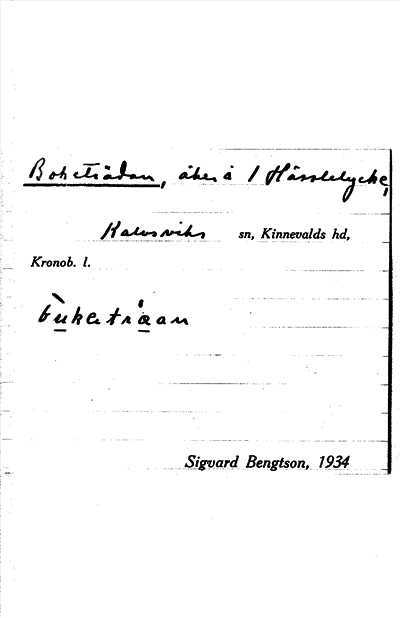 Boketrädan, åker å 1 Hässlelycke,
Kalvsviks sn, Kinnevalds hd,
Kronob. l.
Sigvard Bengtson, 1934